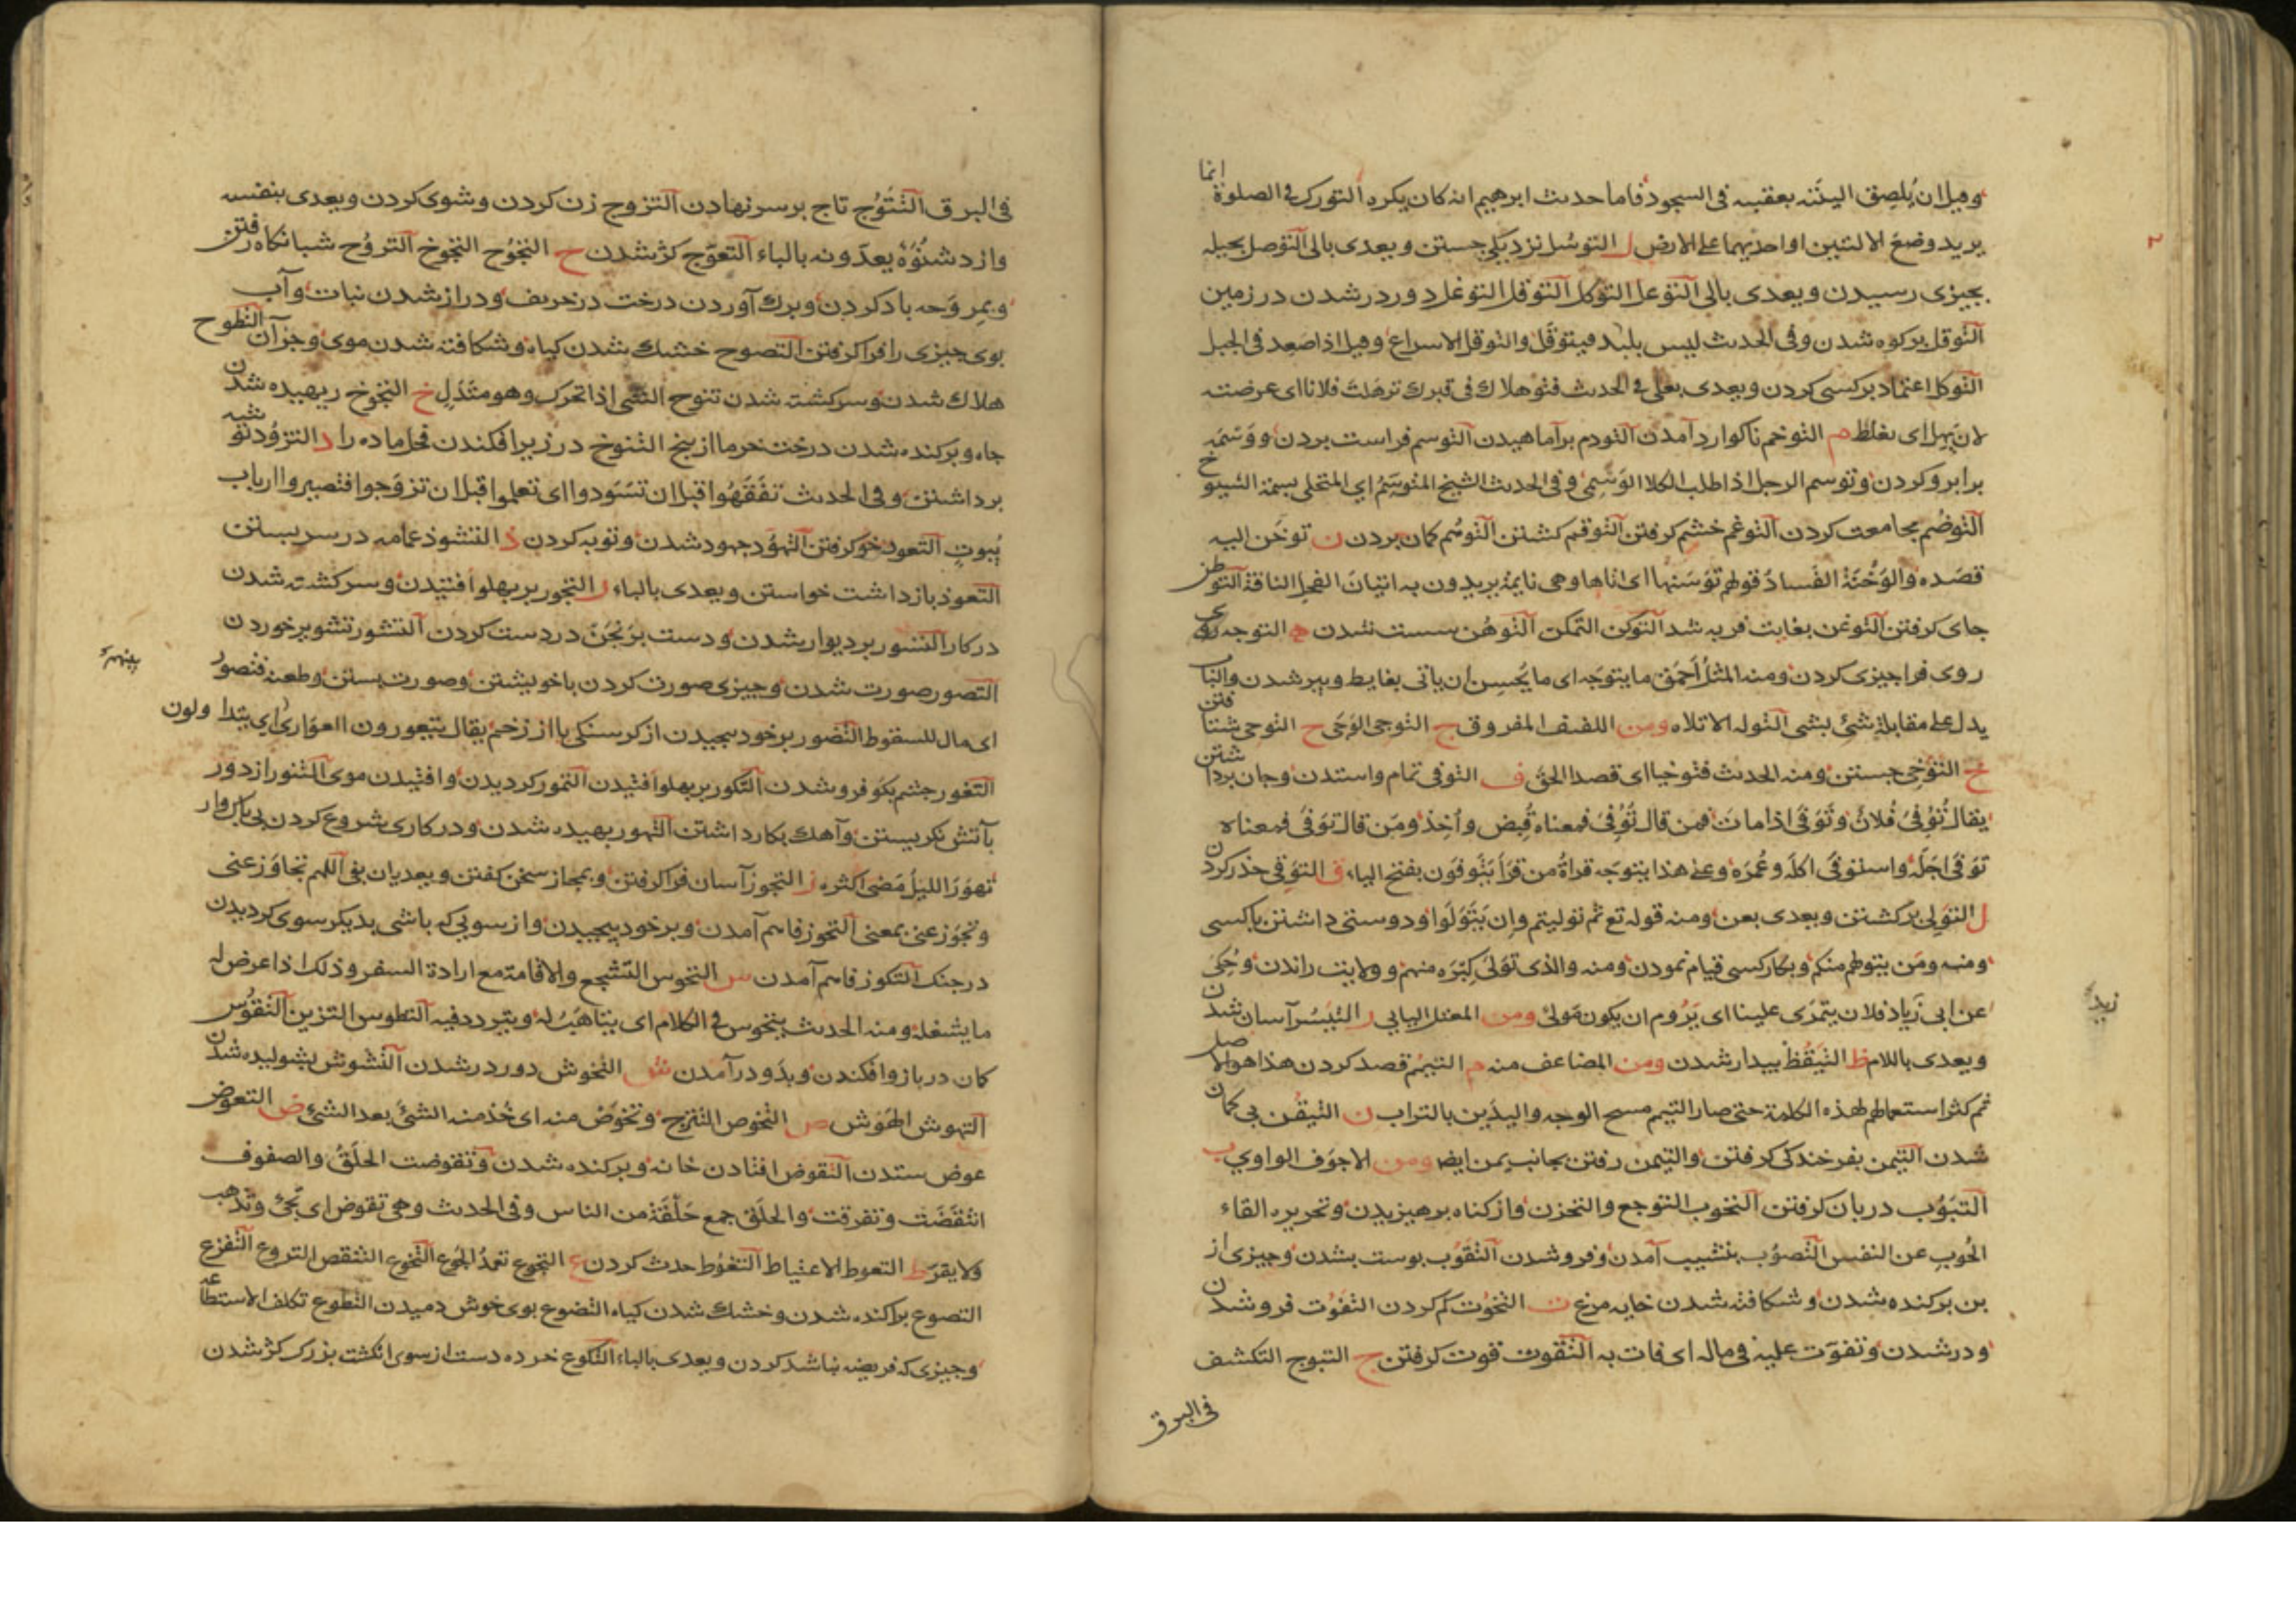 وقيل ان يُلصِق اليتَيه بعقبيه فى السجود فاما حديث ابرهيم انه كان يكره التورك فى الصلوة انما
يريد وضع الاليتين او احديهما على الارض ل التوسُّل نزديكى جستن ويعدى بالى التوَصل بحيله
بچيزى رسيدن ويعدى بالى التوَعل التوكل التوقل التوغل دور در شدن در زمين
التوقل بركوه شدن وفى الحديث ليس بلبد فيتوقَل والتوقل الاسراع وقيل اذا صعد فى الجبل
التوكل اعتماد بركسى كردن ويعدى بعلى فى الحديث فتوهلاك فى قبرك توهلت فلانا اى عرضته
لان يَهِل اى يغلط م التوخم ناكوارد آمدن التودم برآماهيدن التوسم فراست بردن ووَسْمَه
برابرو كردن وتوسم الرجل اذا طلب الكلا الوَسْمِى وفى الحديث الشيخ المتوسّم اى المتحلى بسمة الشيوخ
التوضُم مجامعت كردن التوغم خشم كرفتن التوقم كشتن التوهُم كمان بردن ن توخَن اليه
قصَده والوَخْنَة الفَساد قولهم تَوَسَنها اى اتاها وهى نايمة يريدون به اتيان الفحل الناقة التوطن
جاى كرفتن التوغن بغايت فربه شد التوكن التمكن التوهُن سست شدن ه التوجه روى
روى فرا چيزى كردن ومنه المثل اَحمَق ما يتوجَه اى ما يَحسِن ان ياتى بغايط وپير شدن والباب
يدل على مقابلة شئ بشى التوله الاتلاه ومن اللفيف المفروق ج التوجى الوَجَى ح التوحى شتافتن
خ التوَخى جستن ومنه الحديث فتوخيا اى قصدا الحق ف التوفى تمام واستدن وجان برداشتن
يقال تُوُفِىَ فُلانٌ وتَوَفَى اذا ماتَ فمن قال تُوُفِىَ فمعناه قُبِض واُخِذ ومَن قال تَوَفَى فمعناه
تَوَفَى اجَلَه واستوفَى اكلَه وعُمرَه وعلى هذا يتوجَه قراةُ من قرَأ يَتَوفَون بفتح الياء ق التوَقى حذر كردن
ل التوَلى بركشتن ويعدى بعن ومنه قوله تع ثم توليتم وان يَتَوَلَوا ودوستى داشتن باكسى
ومنه ومَن يتولهم منكم وبكار كسى قيام نمودن ومنه والذى تَوَلَى كِبْرَه منهم وولايت راندن وحُكِىَ
عن ابى زَياد فلان يتمدَى علينا اى يَرُوم ان يكون مَولى ومن المعتل اليايى ر التيَسُر آسان شدن
زيد
ويعدى باللام ظ التيَقُظ بيدار شدن ومن المضاعف منه م التيمُم قصد كردن هذا هو الاصل
ثم كثر استعمالهم لهذه الكلمة حتى صار التيمم مسح الوجه واليدين بالتراب ن التيقُن بى كمان
شدن التيمن بفرخندكى كرفتن والتيمن رفتن بجانب يمن ايضا ومن الاجوَف الواوي ب
التبَوُب دربان كرفتن التحوب التوجع والتحزن واز كناه پرهيزيدن وتحريره القاء
الحُوبِ عن النفس التصوُب بنشيب آمدن وفرو شدن التقوُب پوست بشدن وچيزى از
بن بركنده شدن وشكافته شدن خايه مرغ ت التخوُت كم كردن التفوُت فرو شدن
ودر شدن وتفوّت عليه فى ماله اى فات به التقوت قوت كرفتن ج التبوج التكشف
فى البرق
فى البرق التَتَوُج تاج برسر نهادن التزوج زن كردن وشوى كردن ويعدى بنفسه
وازد شَنُوْءَةَ يعدّونه بالباء التعوّج كژ شدن ح التبَوُح التروُح شبانكاه رفتن
وبمِروَحه باد كردن وبرك آوردن درخت در خريف ودراز شدن نبات وآب
بوى چيزى را فرا كرفتن التصوح خشك شدن كياه وشكافته شدن موى وجزآن التطوح
هلاك شدن وسركشته شدن تنوح الشى اذا تحرك وهو متَدَلٍ خ التبوخ ريهيده شدن
چاه وبركنده شدن درخت خرما از بيخ التنوخ در زير افكندن فحل ماده را د التزوُد توشه
برداشتن وفى الحديث تَفَقَهُوا قبل ان تسَوَدوا اى تعلموا قبل ان تزوَجوا فتصيروا ارباب
بُيوتٍ التعود خو كرفتن التهوُد جهود شدن وتوبه كردن ذ التشوذ عمامه در سر بستن
التعوذ بازداشت خواستن ويعدى بالباء ر التجور بر پهلو افتيدن وسركشته شدن
در كار التسور بر ديوار شدن ودست برَنْجَن در دست كردن التشور تشوير خوردن
التصور صورت شدن وچيزى صورت كردن با خويشتن وصورت بستن وطعنه فتصور
اى مال للسقوط التضور برخود پيچيدن از كرسنكى يا از زخم يقال يتعورون العوارى اى يتداولون
التغور چشم بكَو فرو شدن التكور بر پهلو افتيدن التمور كرديدن وافتيدن موى التنور از دور
بآتش نكريستن وآهك بكار داشتن التهور ريهيده شدن ودر كارى شروع كردن بى باك وار
تهوَرَ الليلُ مَضى اكثره ز التجوز آسان فرا كرفتن وبمجاز سخن كفتن ويعديان بفى اللهم تجاوَز عنى
وتجَوَز عنى بمعنى التحوز فاهم آمدن وبرخود پيچيدن واز سويى كه باشى بديكر سوى كرديدن
در جنك التكوز فاهم آمدن س التحوس التشجع والاقامة مع ارادة السفر وذلك اذا عرض له
ما يشغله ومنه الحديث يتحوس فى الكلام اى يتاهَبُ له ويتردد فيه التطوس التزين التقوُس
كان در بازو افكندن وبدَو در آمدن ش التحوش دور در شدن التشوش بشوليده شدن
التهوش الهَوَش ص التخوص التبَرُج وتخوَصْ منه اى خُذ منه الشئَ بعد الشئ ض التعوض
عوض ستدن التقوض افتادن خانه وبركنده شدن وتقوضت الحلَقُ والصفوف
انتقَضَت وتفرقت والحلَق جمع حَلْقَة من الناس وفى الحديث وهى تقوض اى تجئ وتذهب
ولا يقر ط التعوط الاعتياط التغوُط حدث كردن ع التجوع تعمدُ الجُوع التخوع التنقص التروع التفزع
التصوع پراكنده شدن وخشك شدن كياه التضوع بوى خوش دميدن التطوع تكلف الاستطاعه
وچيزى كه فريضه نباشد كردن ويعدى بالباء التكوع خرده دست از سوى انكشت بزرك كژ شدن